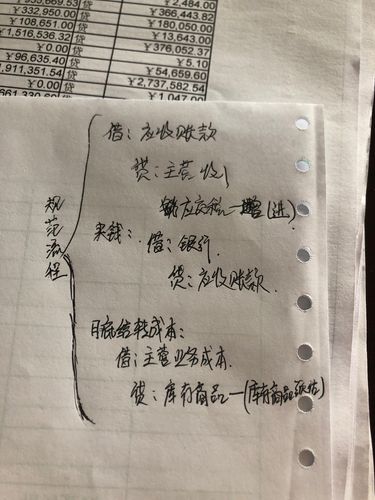 ￥332,950.00 贷 ￥366,443.82
￥108,651.00 贷 ￥180,050.00
￥1,516,536.32 贷 ￥13,643.00
￥0.00 贷 ￥376,052.37
￥96,635.40 贷 ￥5.10
,911,351.54 贷 ￥54,659.60
￥0.00 贷 ￥2,737,582.54
661,330.60 贷 ￥1,047.00
规范流程
借：应收账款
贷：主营收
应交税一 (进)
来钱：借：银行
贷：应收账款
月底结转成本：
借：主营业务成本
贷：库存商品一(库存商品